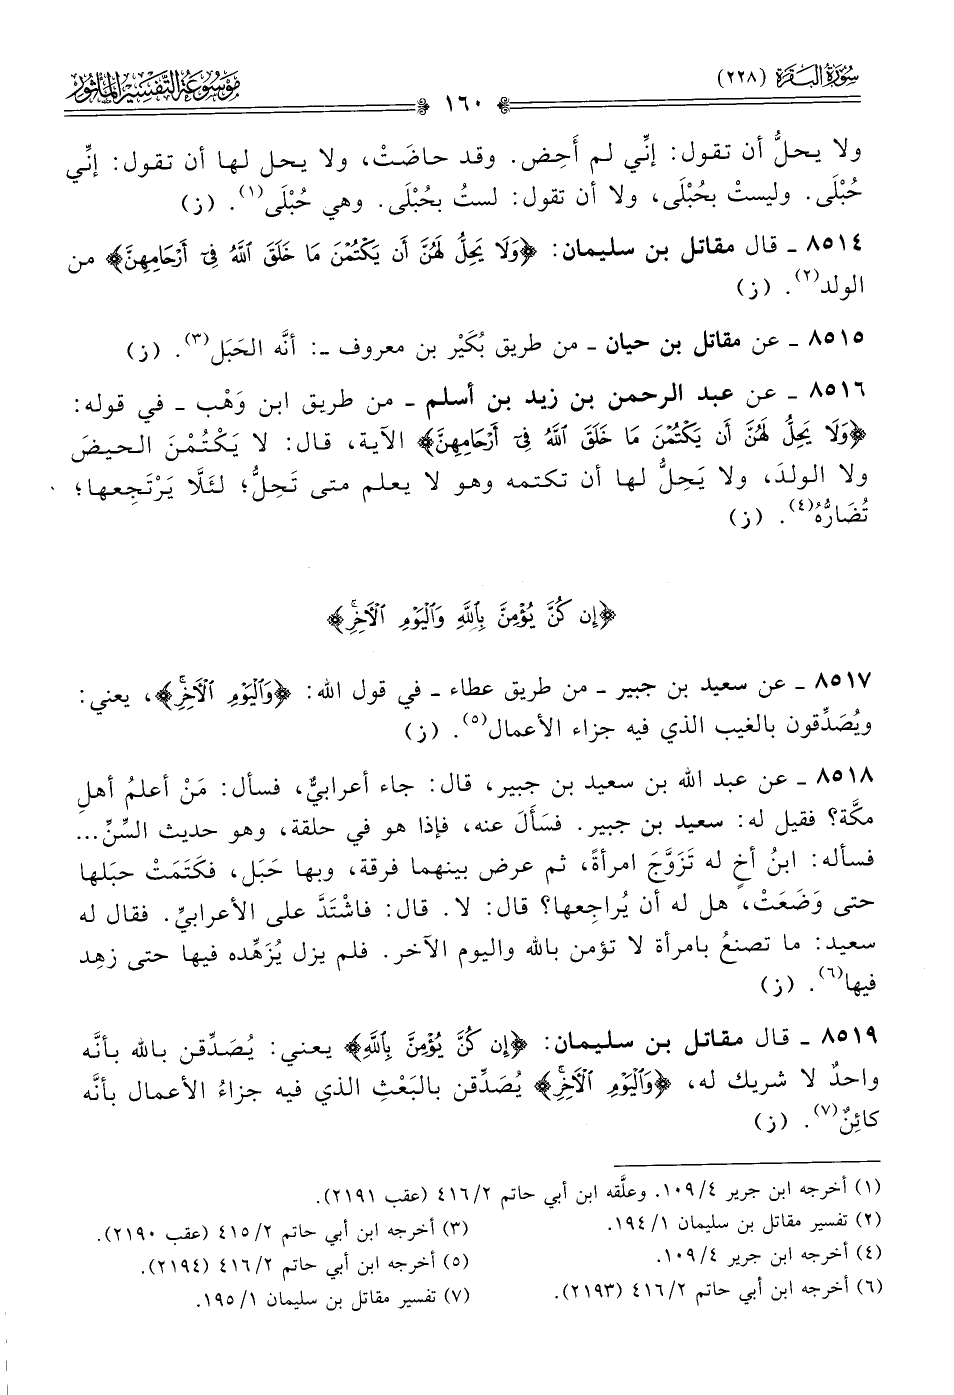 سُورَةُ البَقَرَةِ (٢٢٨)
١٦٠
مَوْسُوعَةُ التَّفْسِيرِ المَأْثُورِ
ولا يحلُّ أن تقول: إنِّي لم أَحِض. وقد حاضَتْ، ولا يحل لها أن تقول: إنِّي
حُبْلَى. وليستْ بحُبْلَى، ولا أن تقول: لستُ بحُبْلَى. وهي حُبْلَى(١). (ز)
٨٥١٤ ـ قال مقاتل بن سليمان: ﴿وَلَا يَحِلُّ لَهُنَّ أَن يَكْتُمْنَ مَا خَلَقَ ٱللَّهُ فِىٓ أَرْحَامِهِنَّ﴾ من
الولد(٢). (ز)
٨٥١٥ ـ عن مقاتل بن حيان ـ من طريق بُكَيْر بن معروف ـ: أنَّه الحَبَل(٣). (ز)
٨٥١٦ ـ عن عبد الرحمن بن زيد بن أسلم ـ من طريق ابن وَهْب ـ في قوله:
﴿وَلَا يَحِلُّ لَهُنَّ أَن يَكْتُمْنَ مَا خَلَقَ ٱللَّهُ فِىٓ أَرْحَامِهِنَّ﴾ الآية، قال: لا يَكْتُمْنَ الحيضَ
ولا الولدَ، ولا يَحِلُّ لها أن تكتمه وهو لا يعلم متى تَحِلُّ؛ لئَلَّا يَرْتَجِعها؛
تُضَارُّهُ(٤). (ز)
﴿إِن كُنَّ يُؤْمِنَّ بِٱللَّهِ وَٱلْيَوْمِ ٱلْأَخِرِۚ﴾
٨٥١٧ ـ عن سعيد بن جبير ـ من طريق عطاء ـ في قول الله: ﴿وَٱلْيَوْمِ ٱلْأَخِرِۚ﴾، يعني:
ويُصَدِّقون بالغيب الذي فيه جزاء الأعمال(٥). (ز)
٨٥١٨ ـ عن عبد الله بن سعيد بن جبير، قال: جاء أعرابيٌّ، فسأل: مَنْ أعلمُ أهلِ
مكَّة؟ فقيل له: سعيد بن جبير. فسَأَلَ عنه، فإذا هو في حلقة، وهو حديث السِّنِّ...
فسأله: ابنُ أخٍ له تَزَوَّجَ امرأةً، ثم عرض بينهما فرقة، وبها حَبَل، فكَتَمَتْ حبَلها
حتى وَضَعَتْ، هل له أن يُراجِعها؟ قال: لا. قال: فاشْتَدَّ على الأعرابيِّ. فقال له
سعيد: ما تصنعُ بامرأة لا تؤمن بالله واليوم الآخر. فلم يزل يُزَهِّده فيها حتى زهِد
فيها(٦). (ز)
٨٥١٩ ـ قال مقاتل بن سليمان: ﴿إِن كُنَّ يُؤْمِنَّ بِٱللَّهِ﴾ يعني: يُصَدِّقن بالله بأنَّه
واحدٌ لا شريك له، ﴿وَٱلْيَوْمِ ٱلْأَخِرِۚ﴾ يُصَدِّقن بالبَعْثِ الذي فيه جزاءُ الأعمال بأنَّه
كائِنٌ(٧). (ز)
(١) أخرجه ابن جرير ٤/ ١٠٩. وعلَّقه ابن أبي حاتم ٢/ ٤١٦ (عقب ٢١٩١).
(٢) تفسير مقاتل بن سليمان ١/ ١٩٤.
(٣) أخرجه ابن أبي حاتم ٢/ ٤١٥ (عقب ٢١٩٠).
(٤) أخرجه ابن جرير ٤/ ١٠٩.
(٥) أخرجه ابن أبي حاتم ٢/ ٤١٦ (٢١٩٤).
(٦) أخرجه ابن أبي حاتم ٢/ ٤١٦ (٢١٩٣).
(٧) تفسير مقاتل بن سليمان ١/ ١٩٥.